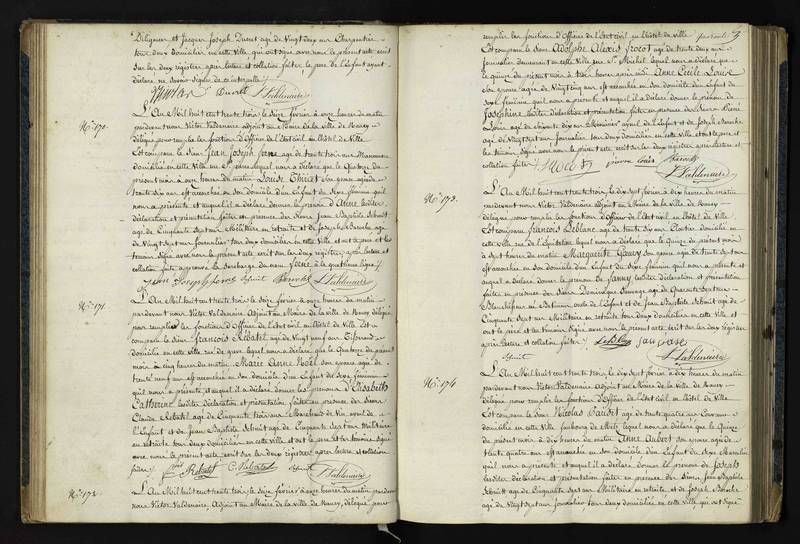 Déligner et Jacques Joseph Ducret agé de Vingt deux ans Charpentier
tous deux domiciliés en cette Ville, qui ont signé avec nous le présent acte écrit
sur les deux registres après lecture et collation faites, le père de l'Enfant ayant
déclaré ne savoir signer de ce interpellé
Ducret Valdenaire
No. 170.
L'An Mil huit cent trente trois, le Seize février à onze heures du matin
pardevant nous Victor Valdenaire adjoint au Maire de la ville de Nancy
délégué pour remplir les fonctions d'Officier de l'Etat civil en l'hôtel de Ville
Est comparu le Sieur Jean Joseph agé de trente trois ans Manœuvre
domicilié en cette Ville lequel nous a déclaré que le Quatorze du
présent mois à heures du matin Louise Thiriet Son épouse agée de
trente six ans est accouchée en son domicile d'un Enfant du Sexe féminin qu'il
nous a présenté, et auquel il a déclaré donner le prénom d'Anne lesdites
déclaration et présentation faites en présence des Sieurs Jean Baptiste Schmit
agé de Cinquante Sept ans Militaire en retraite et de Joseph Baroche agé
de Vingt Sept ans Journalier tous deux domiciliés en cette Ville, et ont le père et les
témoins Signé avec nous le présent acte écrit sur les deux registres, après lecture et
collation faites approuvé la Surcharge du nom à la quatrième ligne
Jean Joseph Schmit Baroche Valdenaire
No. 171.
L'An Mil huit cent trente trois, le Seize février à onze heures du matin
pardevant nous Victor Valdenaire Adjoint au Maire de la ville de Nancy délégué
pour remplir les fonctions d'Officier de l'Etat civil en l'hôtel de Ville Est
comparu le Sieur François Rebatel agé de Vingt neuf ans
domicilié en cette Ville rue de grève lequel nous a déclaré que le Quatorze du présent
mois à Cinq heures du matin Marie Anne Noël Son épouse agée de
trente neuf ans est accouchée en Son domicile d'un Enfant du Sexe féminin
qu'il nous a présenté, et auquel il a déclaré donner les prénoms d'Elisabeth
Catherine lesdites déclaration et présentation faites en présence des Sieurs
Claude Rebatel agé de Cinquante trois ans Marchand de Vin ayeul de
l'Enfant et de Jean Baptiste Schmit agé de Cinquante Sept ans Militaire
en retraite tous deux domiciliés en cette ville et ont le père et les témoins Signé
avec nous le présent acte écrit sur les deux registres, après lecture et collation
faites Rebatel C. Rebatel Schmit Valdenaire
No. 172.
L'An Mil huit cent trente trois, le Seize février à onze heures du matin pardevant
nous Victor Valdenaire Adjoint au Maire de la ville de Nancy, délégué pour
remplir les fonctions d'Officier de l'Etat civil en l'hôtel de ville
Est comparu le Sieur Adolphe Alexis Frocot agé de trente deux ans
journalier demeurant en cette Ville rue St. Michel lequel nous a déclaré que
le quinze du présent mois à trois heures après midi Anne Cécile Louis
Son épouse agée de Vingt cinq ans est accouchée en son domicile d'un Enfant du
Sexe féminin qu'il nous a présenté et auquel il a déclaré donner le prénom de
Joséphine lesdites déclaration et présentation faites en présence des Sieurs Pierre
Louis agé de Soixante dix ans ayeul de l'Enfant et de Joseph Baroche
agé de Vingt Sept ans Journalier tous deux domiciliés en cette Ville et ont le père et
les témoins Signé avec nous le présent acte écrit sur les deux registres après lecture et
collation faites Frocot pierre Louis Baroche
Valdenaire
No. 173.
L'An Mil huit cent trente trois, le dix Sept février à dix heures du matin
pardevant nous Victor Valdenaire Adjoint au Maire de la ville de Nancy
délégué pour remplir les fonctions d'Officier de l'Etat civil en l'hôtel de Ville
Est comparu François Leblanc agé de trente Six ans domicilié en
cette Ville rue de l'Equitation lequel nous a déclaré que le Quinze du présent mois
à Sept heures du matin Marguerite Gaury Son épouse agée de trente Sept ans
est accouchée en Son domicile d'un Enfant du Sexe féminin qu'il nous a présenté et
auquel a déclaré donner le prénom de Fanny lesdites déclaration et présentation
faites en présence des Sieurs Dominique Sauvage agé de Quarante Sept ans
Blanchisseur oncle de l'Enfant et de Jean Baptiste Schmit agé de
Cinquante Sept ans Militaire en retraite tous deux domiciliés en cette Ville, et
ont le père et les témoins Signé avec nous le présent acte écrit sur les deux registres
après lecture et collation faites Leblanc Sauvage
Schmit Valdenaire
No. 174.
L'An Mil huit cent trente trois, le dix Sept février à dix heures du matin
pardevant nous Victor Valdenaire Adjoint au Maire de la ville de Nancy
délégué pour remplir les fonctions d'Officier de l'Etat civil en l'hôtel de Ville
Est comparu le Sieur Nicolas agé de trente quatre ans
domicilié en cette Ville faubourg de Metz lequel nous a déclaré que le Quinze
du présent mois à dix heures du matin Anne Aubert Son épouse agée de
trente quatre ans est accouchée en son domicile d'un Enfant du Sexe Masculin
qu'il nous a présenté et auquel il a déclaré donner le prénom de Joseph
lesdites déclaration et présentation faites en présence des Sieurs Jean Baptiste
Schmit agé de Cinquante Sept ans Militaire en retraite, et de Joseph Baroche
agé de Vingt Sept ans Journalier tous deux domiciliés en cette ville qui ont Signé